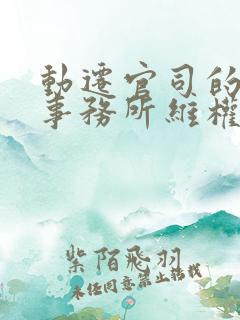 動遷官司的
事務所維權
紫陌飛羽
未经同意禁止转载